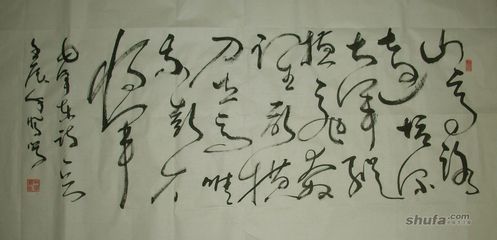 山高路
远坑深
大军纵
横驰奔
谁敢横
刀立马唯
我彭大
将军
毛泽东诗一首
壬辰年
shufa.com